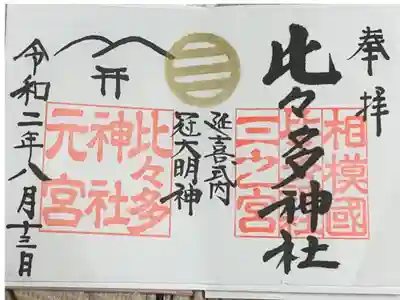 奉拝
相模國
三之宮
比々多神社
延喜式内
冠大明神
比々多
神社
元宮
令和二年八月十三日